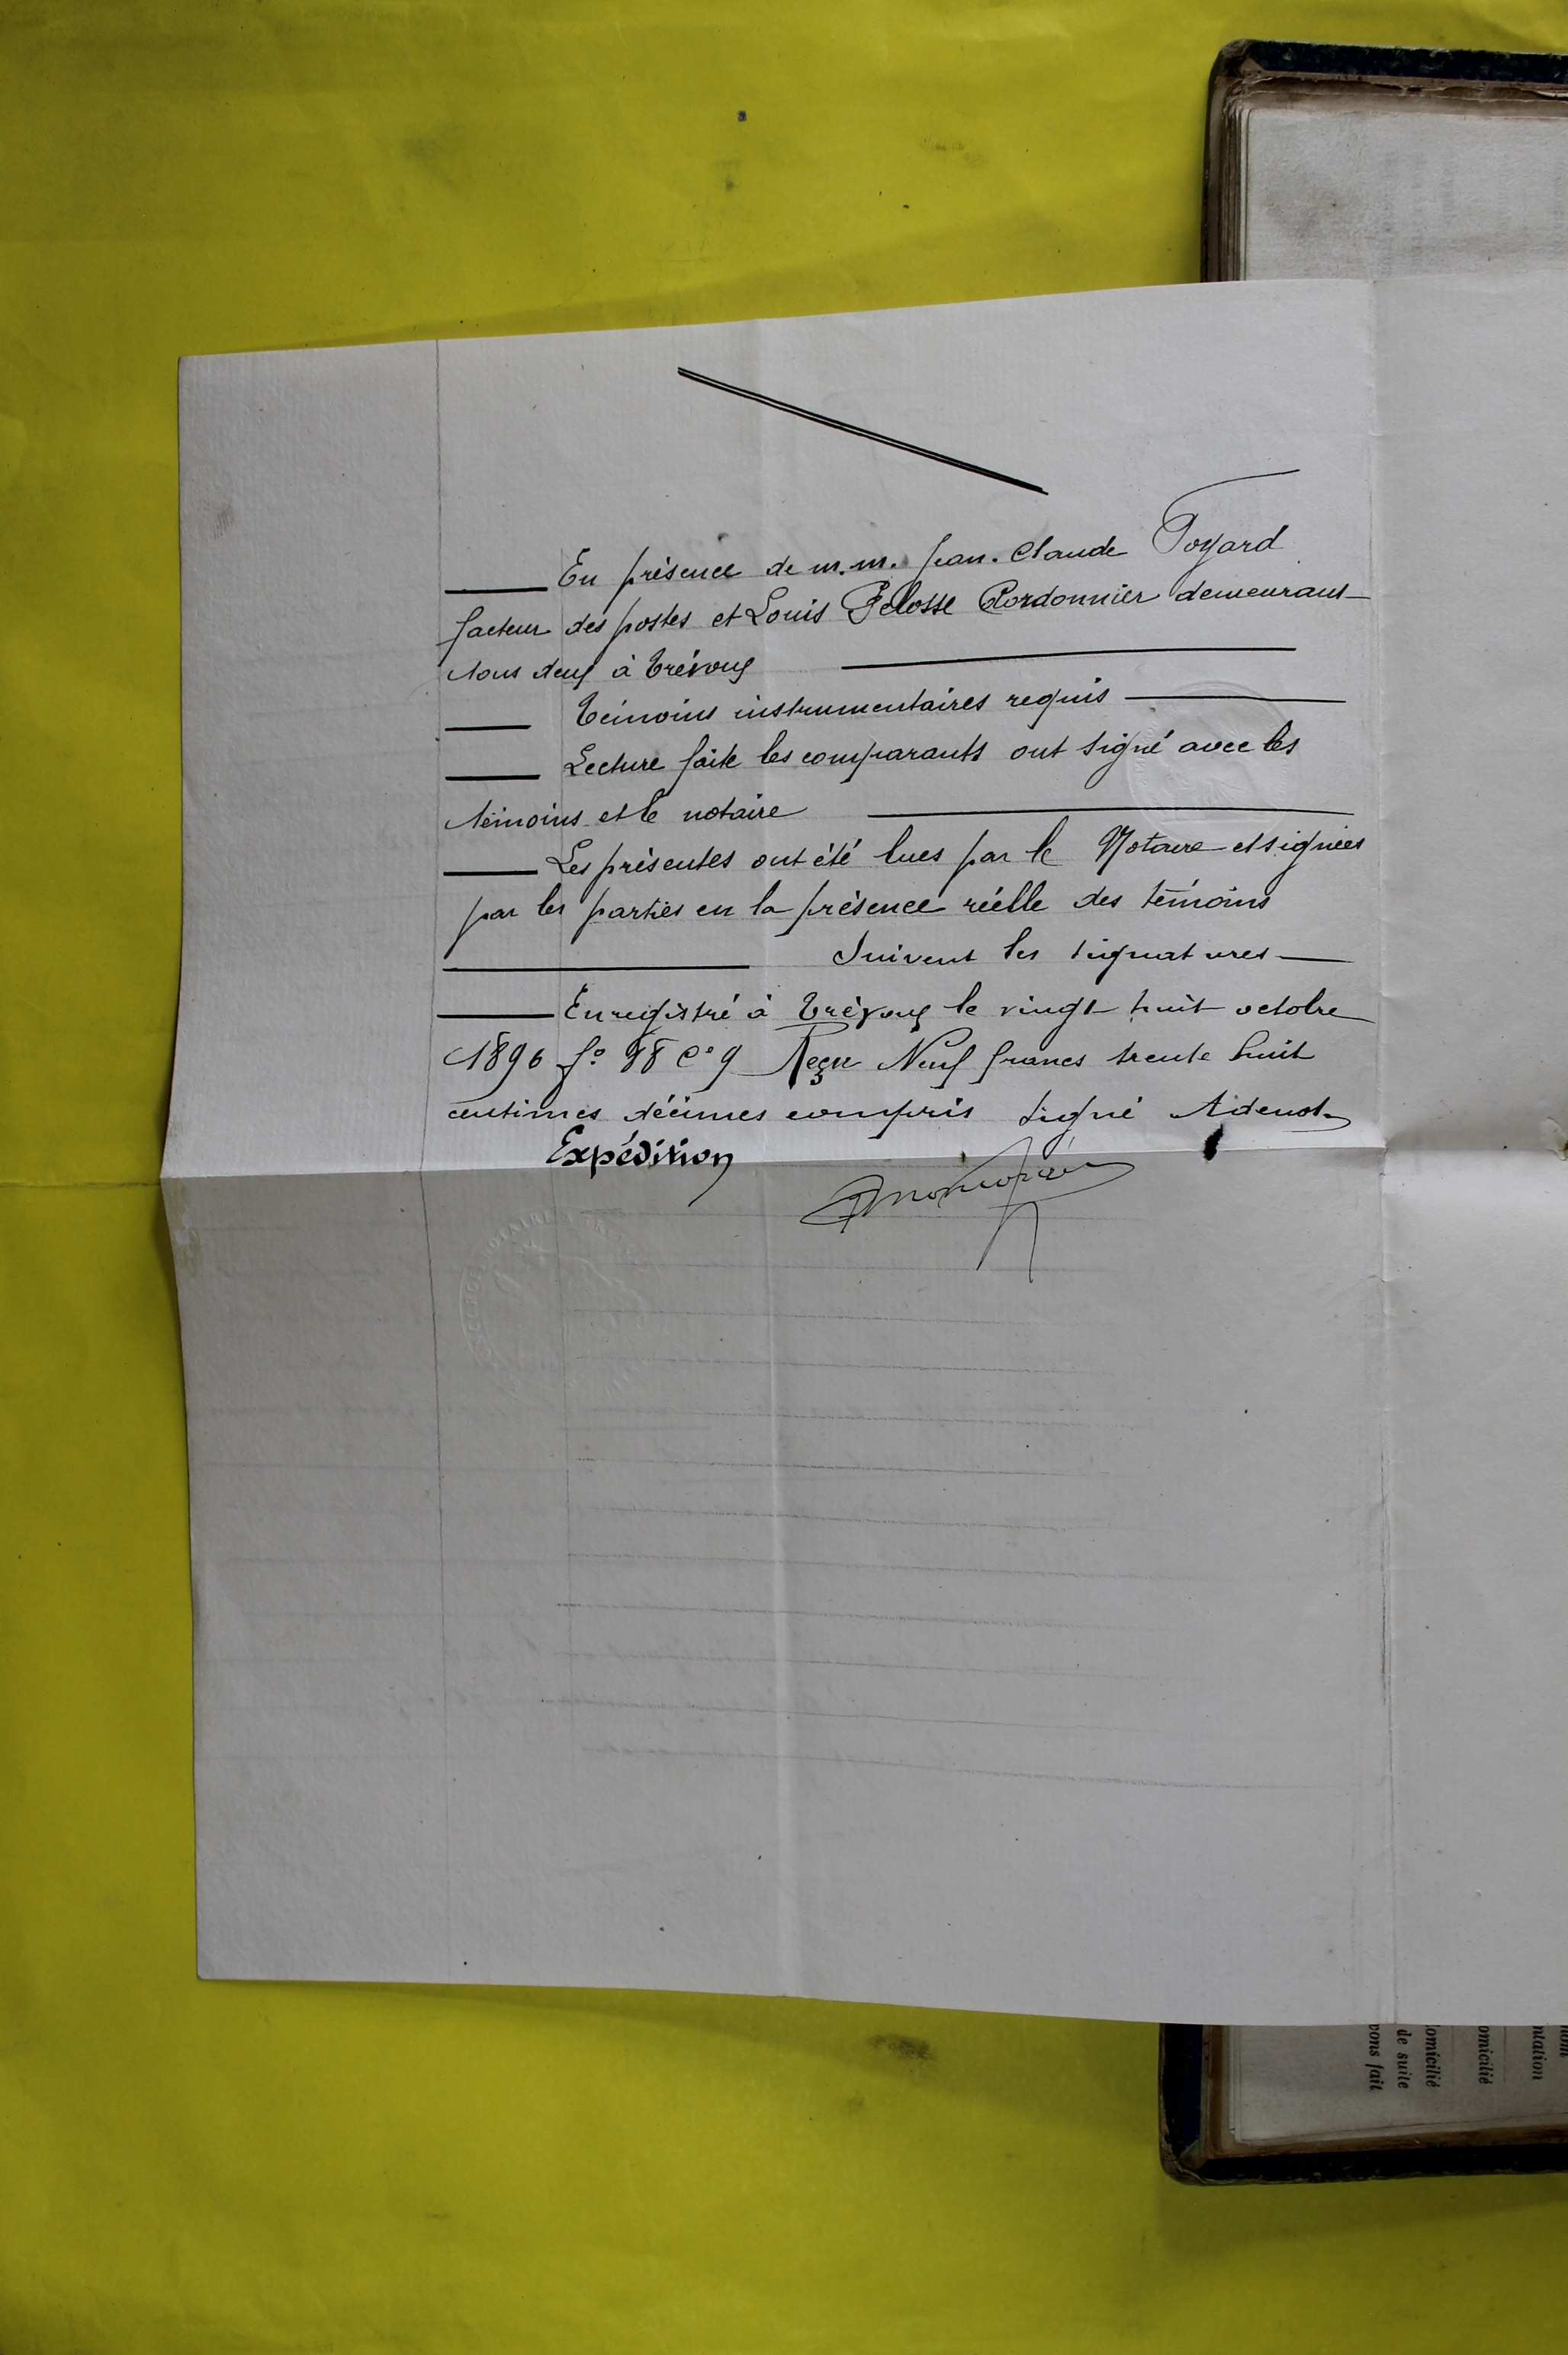 En présence de m.m. Jean. Claude Poyard
facteur des postes et Louis Pelosse Cordonnier demeurant
tous deux à Trévoux
Témoins instrumentaires requis
Lecture faite les comparants ont signé avec les
témoins et le notaire
Les présentes ont été lues par le Notaire et signées
par les parties en la présence réelle des témoins
Suivent les signatures
Enregistré à Trévoux le vingt huit octobre
1896 fo 98 Co 9 Reçu Neuf francs trente huit
centimes décimes compris signé Adenot
Expédition
omicilié
de suite
vons fait
omicilié
ntation
nom